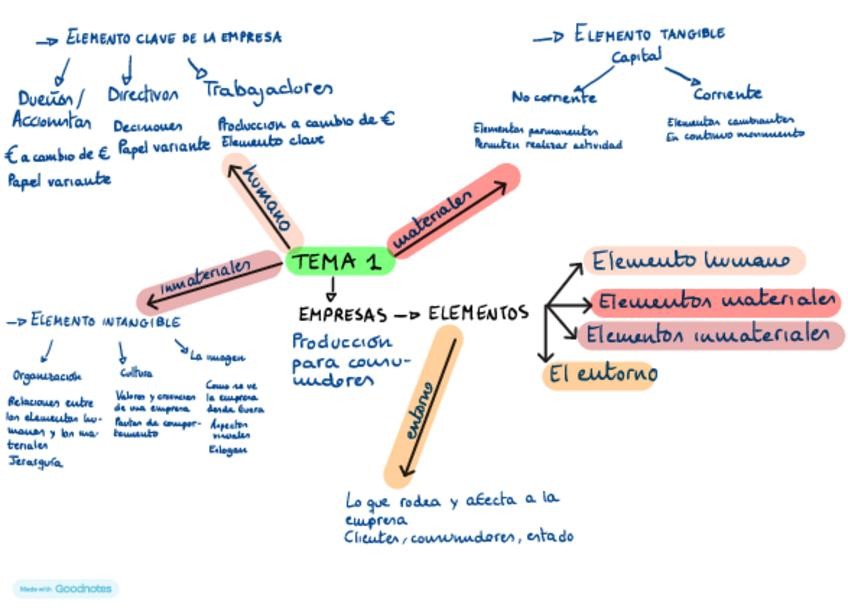 → ELEMENTO CLAVE DE LA EMPRESA
Dueños/
Accionistas
€ a cambio de €
Papel variante
Directivos
Decisiones
Papel variante
Trabajadores
Producción a cambio de €
Elemento clave
→ ELEMENTO TANGIBLE
Capital
No corriente
Elementos permanentes
Permiten realizar actividad
Corriente
Elementos cambiantes
En continuo movimiento
humano
materiales
inmateriales
TEMA 1
EMPRESAS → ELEMENTOS
Producción
para consu-
midores
Elemento humano
Elementos materiales
Elementos inmateriales
El entorno
→ ELEMENTO INTANGIBLE
Organización
Relaciones entre
los elementos hu-
manos y los ma-
teriales
Jerarquía
Cultura
Valores y creencias
de una empresa
Pautas de compor-
tamiento
La imagen
Como se ve
la empresa
desde fuera
Aspectos
visuales
Eslogan
entorno
Lo que rodea y afecta a la
empresa
Clientes, consumidores, estado
Made with Goodnotes